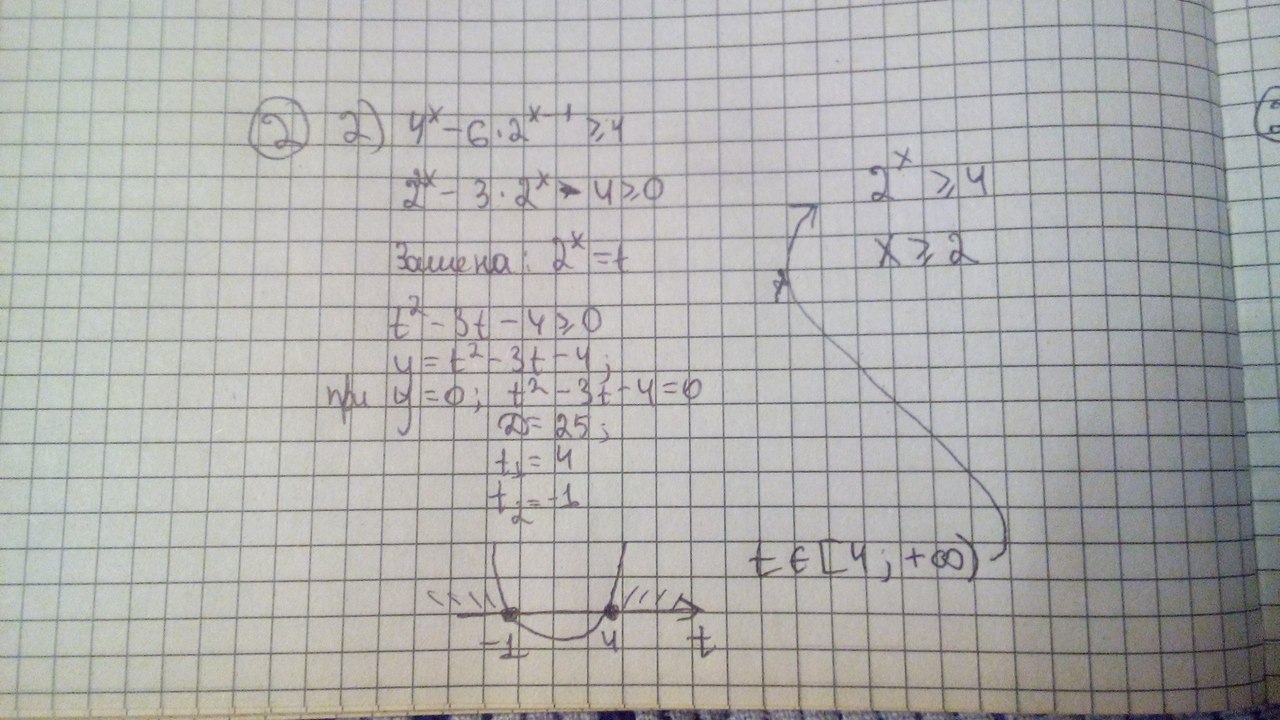 ② 2) 4ˣ - 6·2ˣ⁻¹ ≥ 4
2ˣ - 3·2ˣ - 4 ≥ 0
Замена: 2ˣ = t
t² - 3t - 4 ≥ 0
y = t² - 3t - 4;
при y = 0; t² - 3t - 4 = 0
D = 25;
t₁ = 4
t₂ = -1
-1 4 t
t ∈ [4; +∞)
2ˣ ≥ 4
x ≥ 2